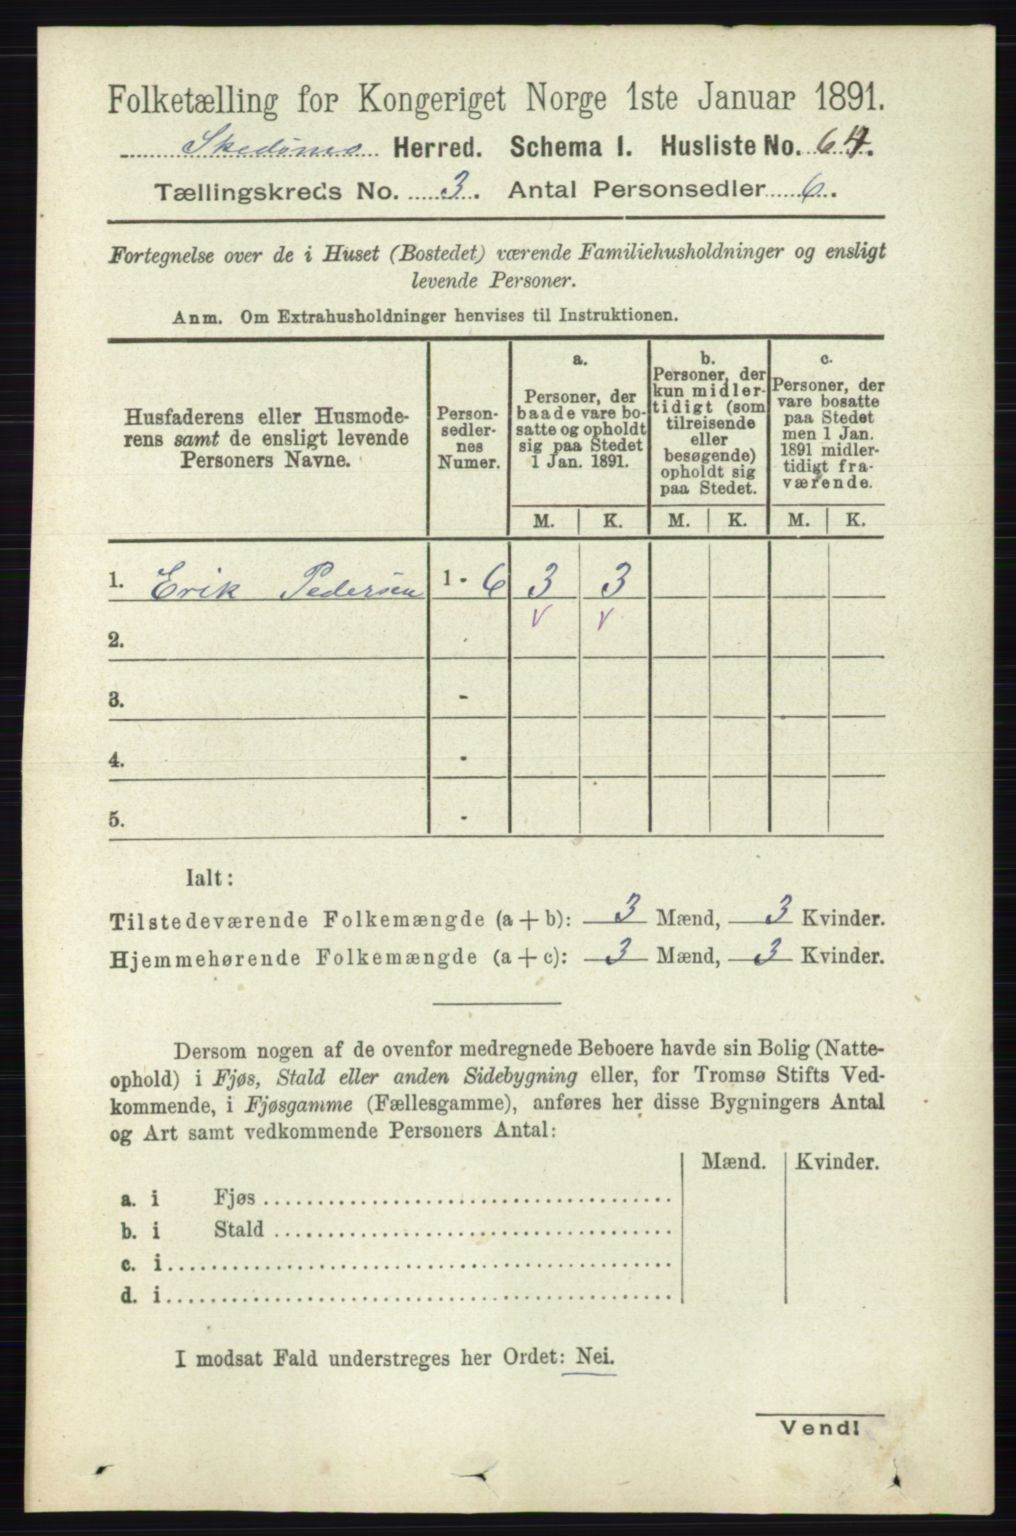 Folketælling for Kongeriget Norge 1ste Januar 1891.
Skedsmo Herred. Schema I. Husliste No. 64.
Tællingskreds No. 3. Antal Personsedler 6.
Fortegnelse over de i Huset (Bostedet) værende Familiehusholdninger og ensligt
levende Personer.
Anm. Om Extrahusholdninger henvises til Instruktionen.
Husfaderens eller Husmode-
rens samt de ensligt levende
Personers Navne.
Person-
sedler-
nes
Numer.
a.
Personer, der
baade vare bo-
satte og opholdt
sig paa Stedet
1 Jan. 1891.
b.
Personer, der
kun midler-
tidigt (som
tilreisende
eller
besøgende)
opholdt sig
paa Stedet.
c.
Personer, der
vare bosatte
paa Stedet
men 1 Jan.
1891 midler-
tidigt fra-
værende.
M. K. M. K. M. K.
1. Erik Pedersen 1 - 6 3 3
v v
2. -
3. -
4. -
5. -
Ialt:
Tilstedeværende Folkemængde (a + b): 3 Mænd, 3 Kvinder.
Hjemmehørende Folkemængde (a + c): 3 Mænd, 3 Kvinder.
Dersom nogen af de ovenfor medregnede Beboere havde sin Bolig (Natte-
ophold) i Fjøs, Stald eller anden Sidebygning eller, for Tromsø Stifts Ved-
kommende, i Fjøsgamme (Fællesgamme), anføres her disse Bygningers Antal
og Art samt vedkommende Personers Antal:
Mænd. Kvinder.
a. i Fjøs
b. i Stald
c. i
d. i
I modsat Fald understreges her Ordet: Nei.
Vend!